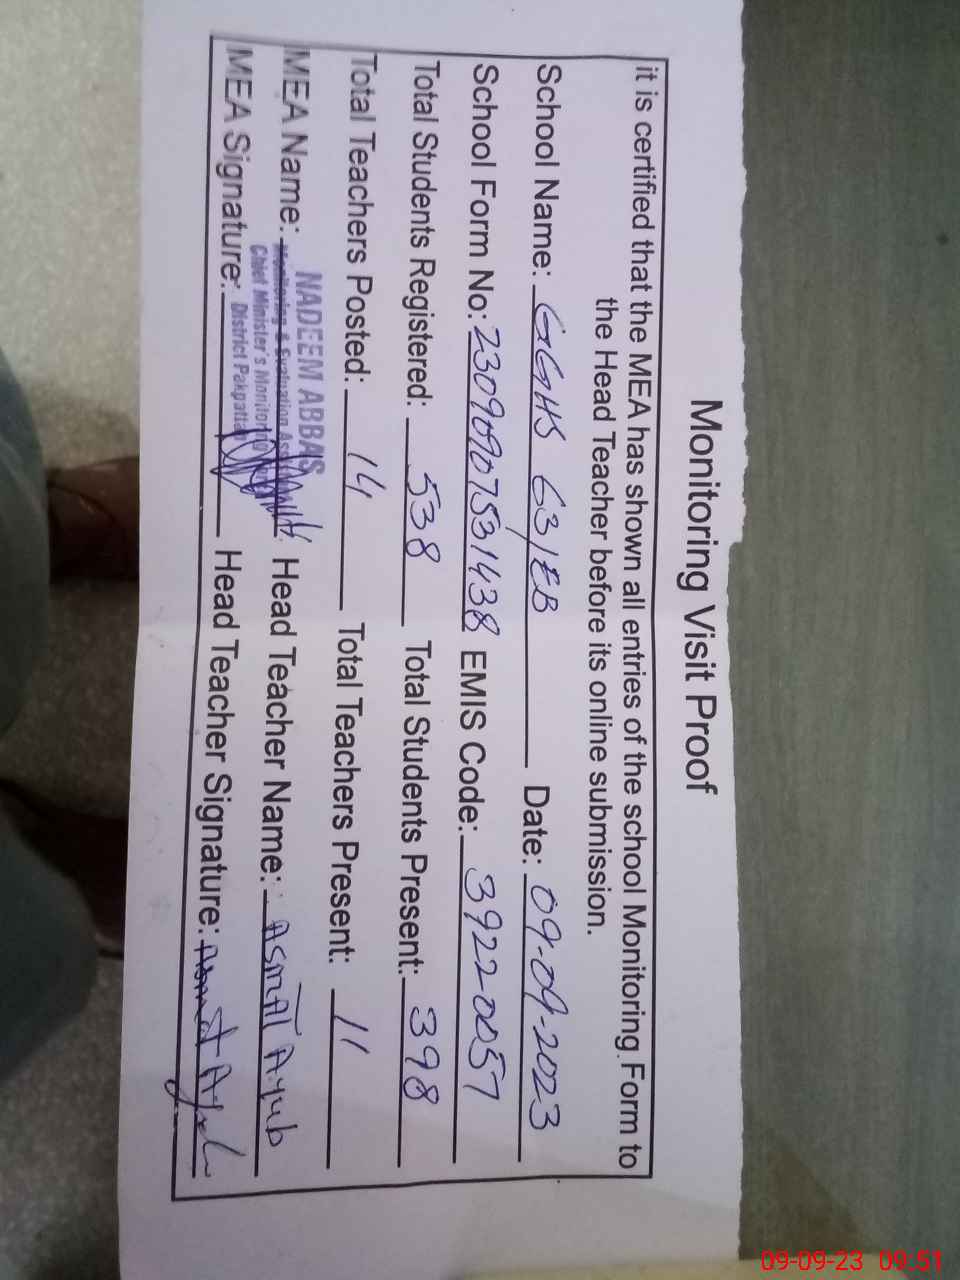 Monitoring Visit Proof
it is certified that the MEA has shown all entries of the school Monitoring Form to
the Head Teacher before its online submission.
School Name: GGHS 63/EB Date: 09-09-2023
School Form No: 23090907531438 EMIS Code: 39220057
Total Students Registered: 538 Total Students Present: 398
Total Teachers Posted: 14 Total Teachers Present: 11
MEA Name: NADEEM ABBAS Head Teacher Name: ASMAT Ayub
Monitoring & Evaluation
Chief Minister's Monitoring
MEA Signature: District Pakpattan Head Teacher Signature: Asmat Ayub
09-09-23 09:51